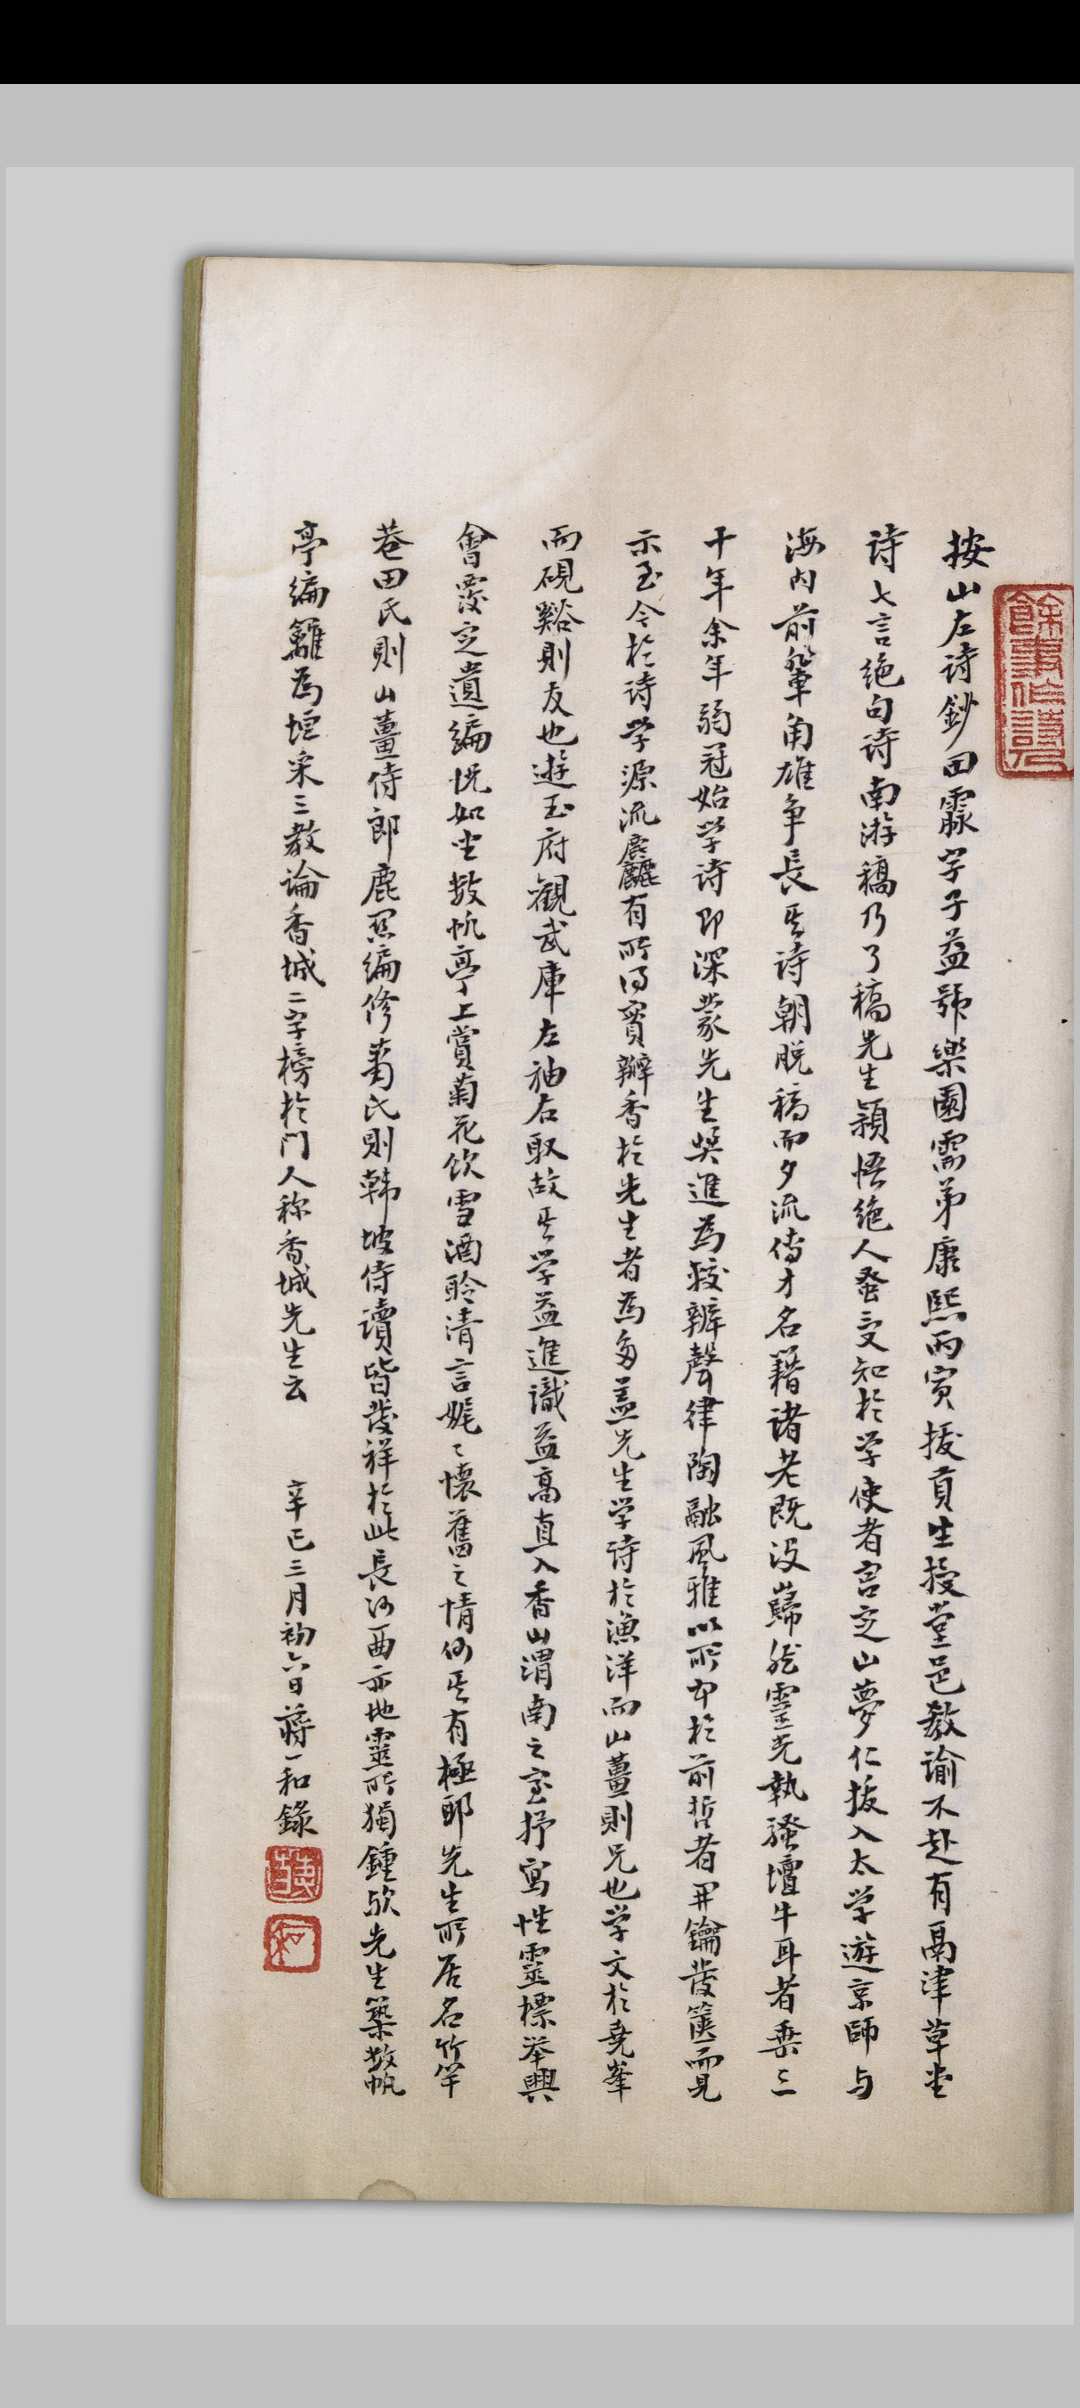 餘事作詩人
按山左詩鈔田霢字子益號樂園需弟康熙丙寅拔貢生授堂邑教諭不赴有鬲津草堂
詩七言絕句詩南游稿乃了稿先生穎悟絕人蚤受知於学使者宮定山夢仁拔入太学遊京師与
海内前輩角雄爭長其詩朝脱稿而夕流傳才名籍諸老既没巋然靈光執騷壇牛耳者垂三
十年余年弱冠始学詩即深蒙先生奬進為較辨聲律陶融風雅以所本於前哲者開鑰發篋而見
示至今於詩学源流麤有所得實瓣香於先生者為多盖先生学詩於漁洋而山薑則兄也学文於堯峯
而硯谿則友也遊玉府觀武庫左袖右取故其学益進識益高直入香山渭南之室抒寫性靈標举興
會覆定遺編怳如坐數帆亭上賞菊花飲雪酒聆清言娓〻懷舊之情何其有極耶先生所居名竹竿
巷田氏則山薑侍郎鹿關編修蕭氏則韓坡侍讀皆發祥於此長河西亦地靈所獨鍾歟先生築數帆
亭編籬為垣采三教論香城二字榜於門人称香城先生云 辛巳三月初六日蔣一和錄